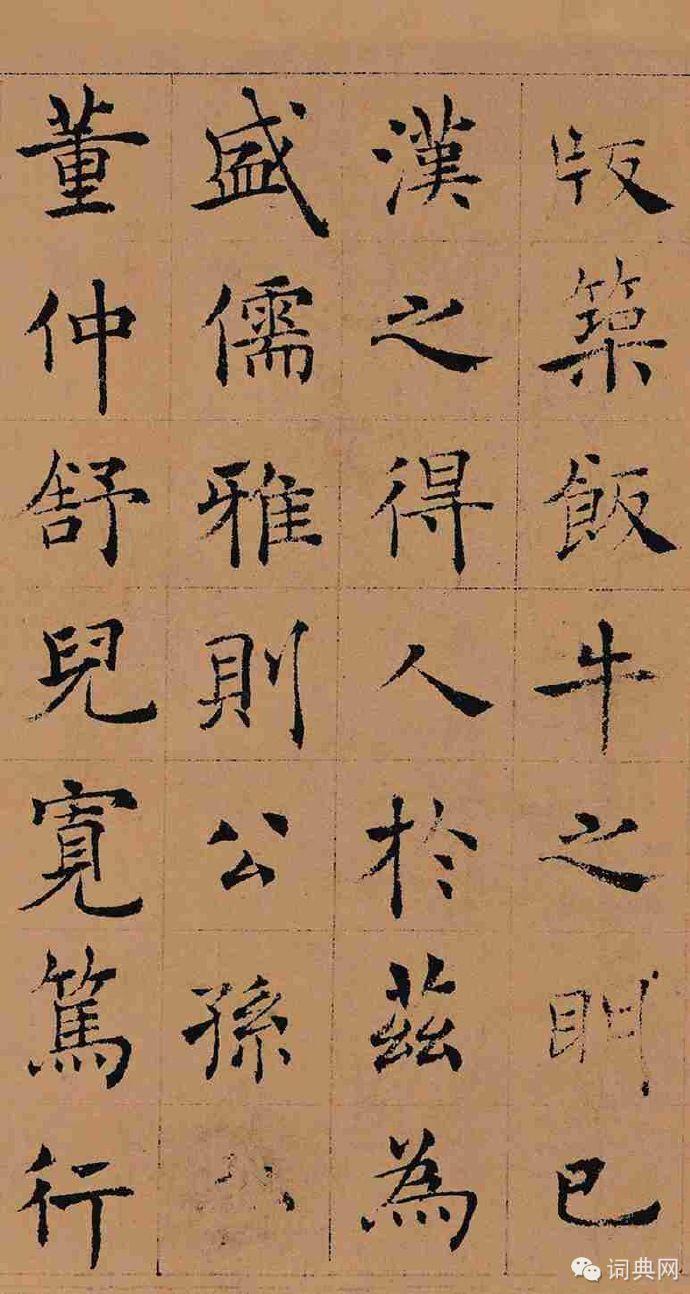 版築飯牛之明已
漢之得人於茲為
盛儒雅則公孫
董仲舒兒寬篤行
词典网